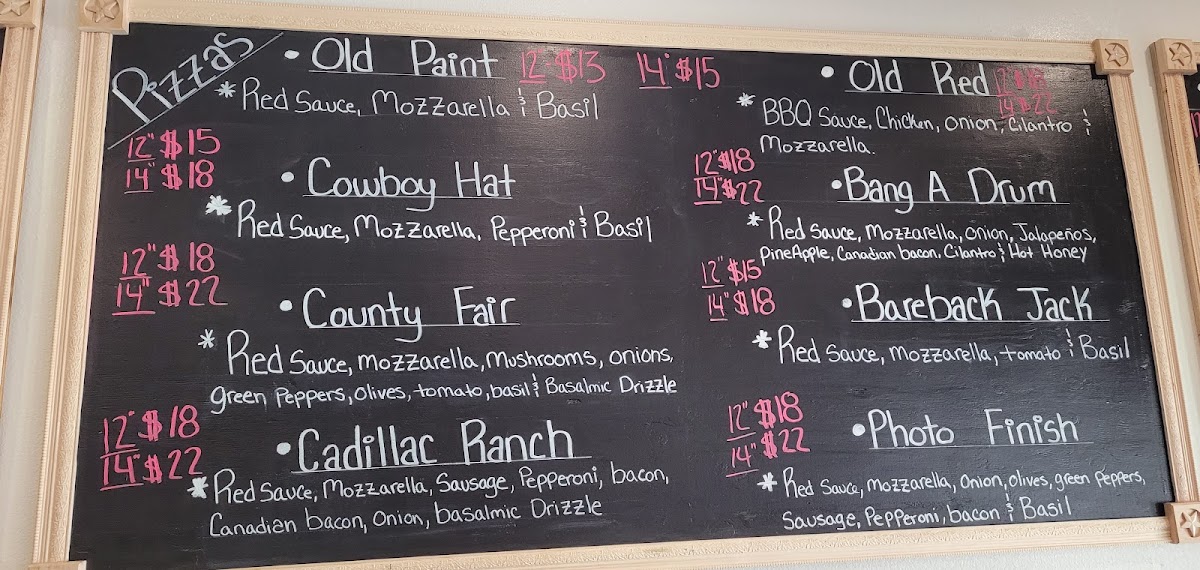 Pizzas
• Old Paint 12" $13 14" $15
* Red Sauce, Mozzarella & Basil
12" $15
14" $18
• Cowboy Hat
* Red Sauce, Mozzarella, Pepperoni & Basil
12" $18
14" $22
• County Fair
* Red Sauce, mozzarella, Mushrooms, onions,
green Peppers, olives, tomato, basil & Basalmic Drizzle
12" $18
14" $22
• Cadillac Ranch
* Red Sauce, Mozzarella, Sausage, Pepperoni, bacon,
Canadian bacon, Onion, basalmic Drizzle
• Old Red 12" $18
14" $22
* BBQ Sauce, Chicken, onion, Cilantro &
Mozzarella.
12" $18
14" $22
• Bang A Drum
* Red Sauce, Mozzarella, onion, Jalapeños,
PineApple, Canadian bacon, Cilantro & Hot Honey
12" $15
14" $18
• Bareback Jack
* Red Sauce, mozzarella, tomato & Basil
12" $18
14" $22
• Photo Finish
* Red Sauce, mozzarella, onion, olives, green peppers,
Sausage, Pepperoni, bacon & Basil